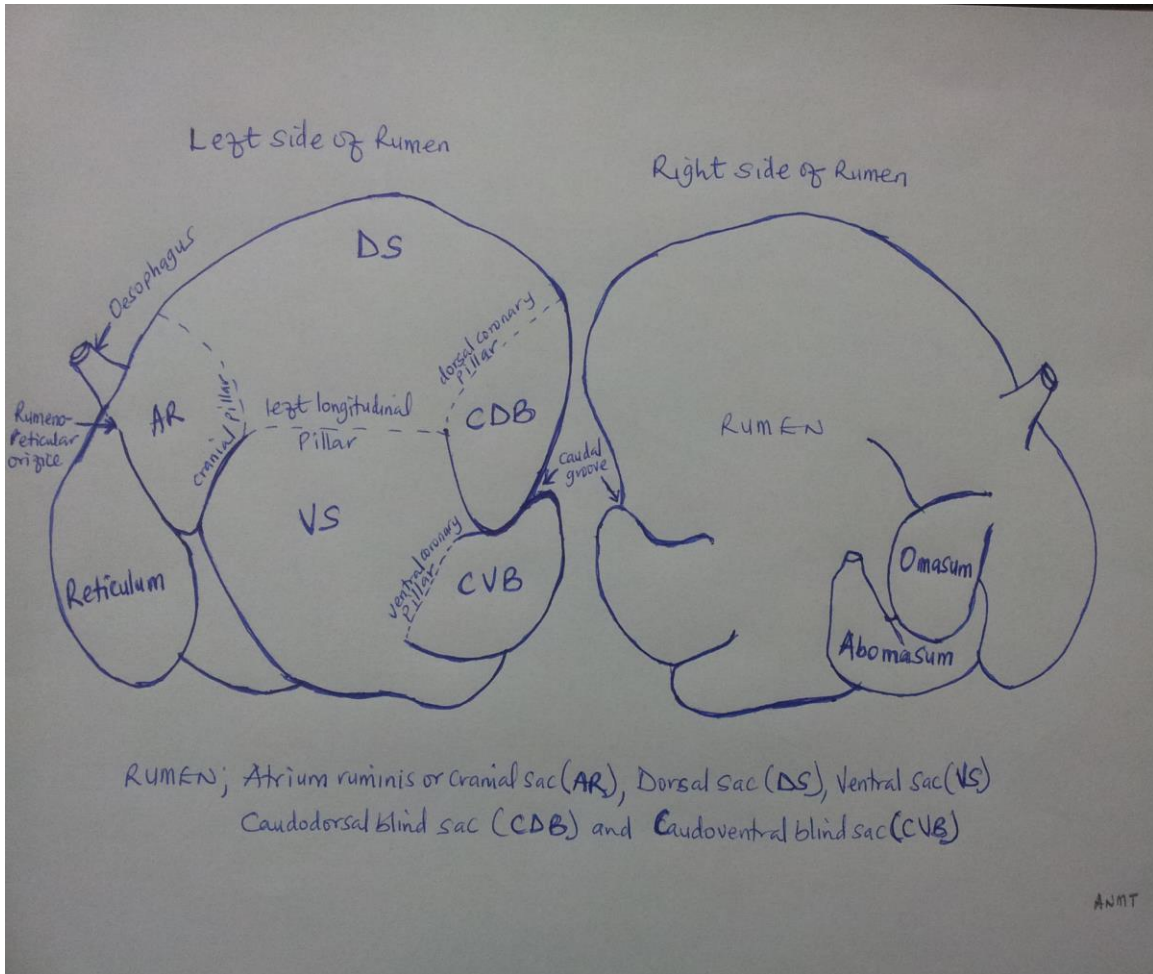 Left side of Rumen
Right side of Rumen
DS
Oesophagus
dorsal coronary
Pillar
Rumeno-
reticular
orifice
AR
cranial pillar
left longitudinal
Pillar
CDB
caudal
groove
RUMEN
VS
ventral coronary
Pillar
Reticulum
CVB
Omasum
Abomasum
RUMEN; Atrium ruminis or cranial sac (AR), Dorsal sac (DS), Ventral sac (VS)
Caudodorsal blind sac (CDB) and Caudoventral blind sac (CVB)
ANMT